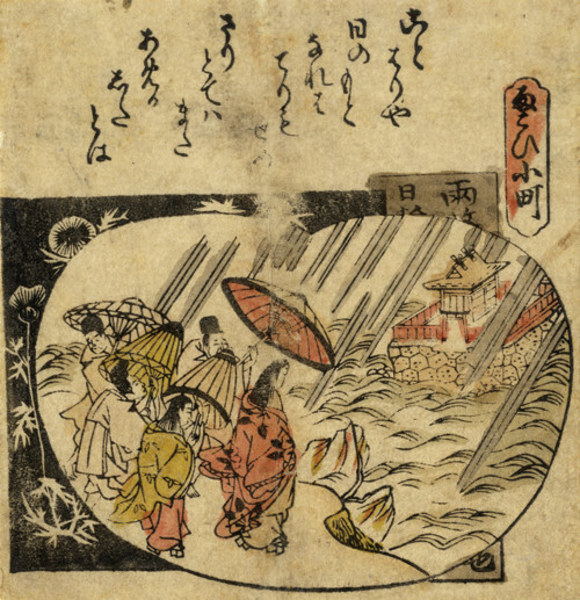 雨こひ小町
ことはりや
日のもと
なれは
てりも
せめ
さり
とてハ
また
あめか
した
とは
雨
日